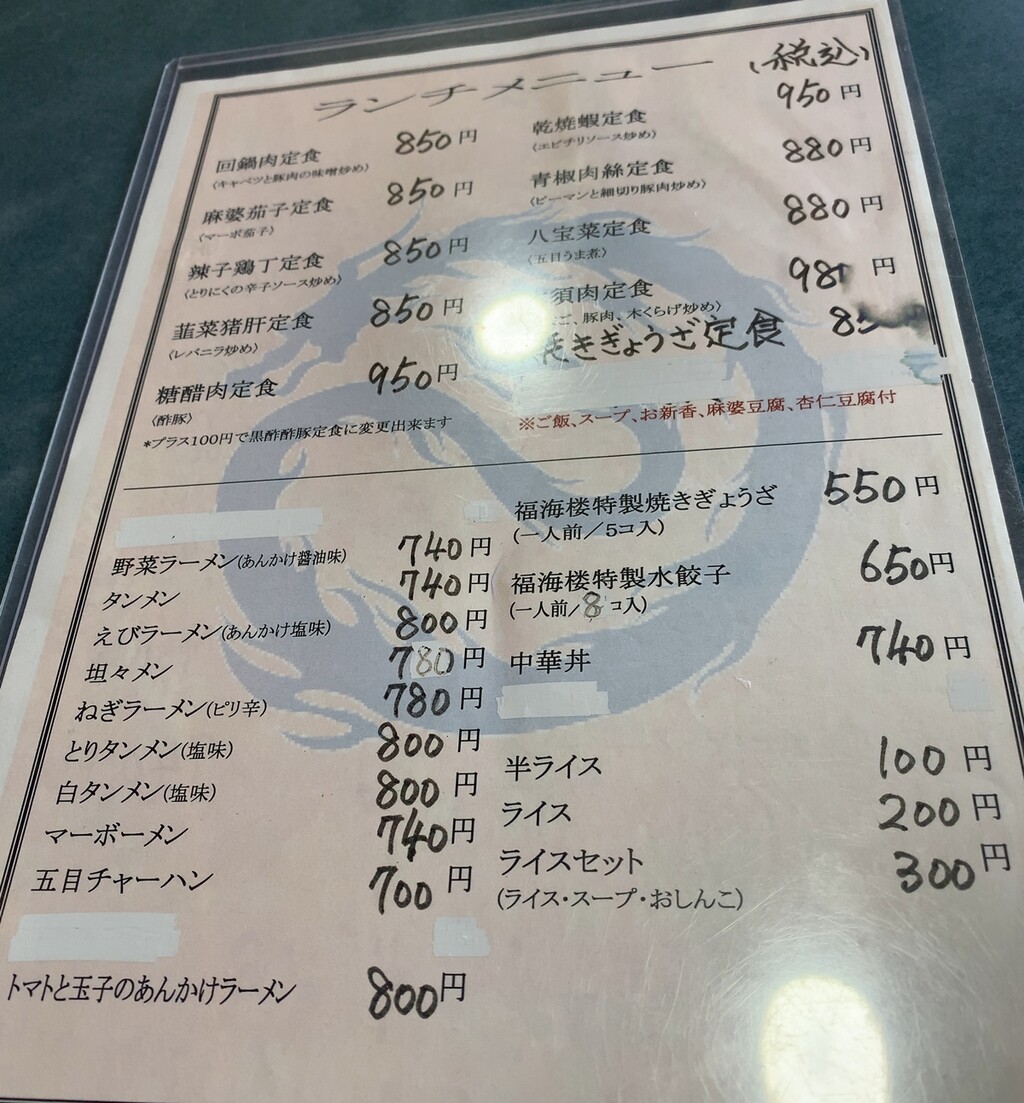 ランチメニュー (税込)
回鍋肉定食 850円
(キャベツと豚肉の味噌炒め)
麻婆茄子定食 850円
(マーボ茄子)
辣子鶏丁定食 850円
(とりにくの辛子ソース炒め)
韮菜猪肝定食 850円
(レバニラ炒め)
糖醋肉定食 950円
(酢豚)
*プラス100円で黒酢酢豚定食に変更出来ます
乾焼蝦定食 950円
(エビチリソース炒め)
青椒肉絲定食 880円
(ピーマンと細切り豚肉炒め)
八宝菜定食 880円
(五目うま煮)
須肉定食 円
豚肉、木くらげ炒め)
きぎょうざ定食
※ご飯、スープ、お新香、麻婆豆腐、杏仁豆腐付
野菜ラーメン(あんかけ醤油味) 740円
タンメン 740円
えびラーメン(あんかけ塩味) 800円
坦々メン 780円
ねぎラーメン(ピリ辛) 780円
とりタンメン(塩味) 800円
白タンメン(塩味) 800円
マーボーメン 740円
五目チャーハン 700円
トマトと玉子のあんかけラーメン 800円
福海楼特製焼きぎょうざ 550円
(一人前/5コ入)
福海楼特製水餃子 650円
(一人前/8コ入)
中華丼 740円
半ライス 100円
ライス 200円
ライスセット 300円
(ライス・スープ・おしんこ)